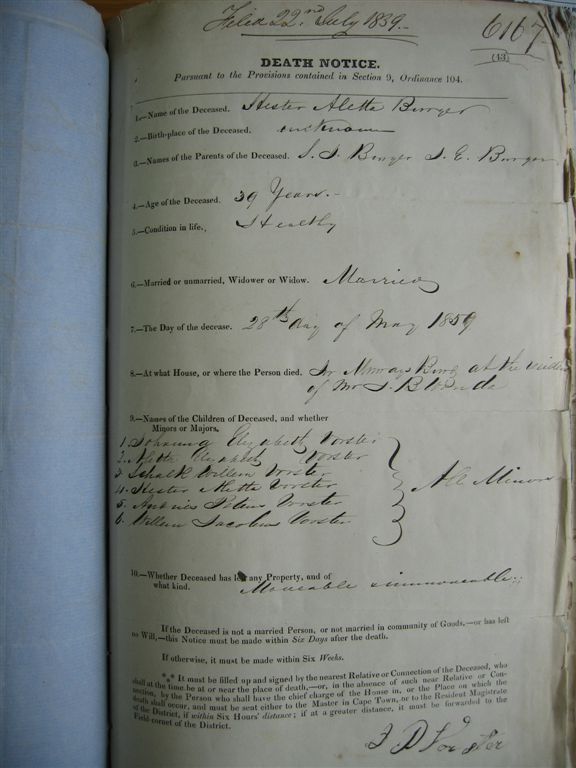 Filed 22nd July 1859.-
6167
(43)
DEATH NOTICE.
Pursuant to the Provisions contained in Section 9, Ordinance 104.
1.—Name of the Deceased. Hester Aletta Burger
2.—Birth-place of the Deceased. unknown
3.—Names of the Parents of the Deceased. S. J. Burger J. E. Burger
4.—Age of the Deceased. 39 Years.-
5.—Condition in life., Healthy
6.—Married or unmarried, Widower or Widow. Married
7.—The Day of the decease. 28th day of May 1859
8.—At what House, or where the Person died. In Murraysburg at the
of Mr J. B
9.—Names of the Children of Deceased, and whether
Minors or Majors,
1. Johanna Elizabeth Vorster
2. Aletta Elizabeth Vorster
3 Schalk Willem Vorster
4. Hester Aletta Vorster
5. Andries Petrus Vorster
6. Willem Jacobus Vorster
All Minors
10.—Whether Deceased has left any Property, and of
what kind. Moveable & immoveable.
If the Deceased is not a married Person, or not married in community of Goods,—or has left
no Will,—this Notice must be made within Six Days after the death.
If otherwise, it must be made within Six Weeks.
*** It must be filled up and signed by the nearest Relative or Connection of the Deceased, who
shall at the time be at or near the place of death,—or, in the absence of such near Relative or Con-
nection, by the Person who shall have the chief charge of the House in, or the Place on which the
death shall occur, and must be sent either to the Master in Cape Town, or to the Resident Magistrate
of the District, if within Six Hours' distance; if at a greater distance, it must be forwarded to the
Field-cornet of the District.
J D Vorster